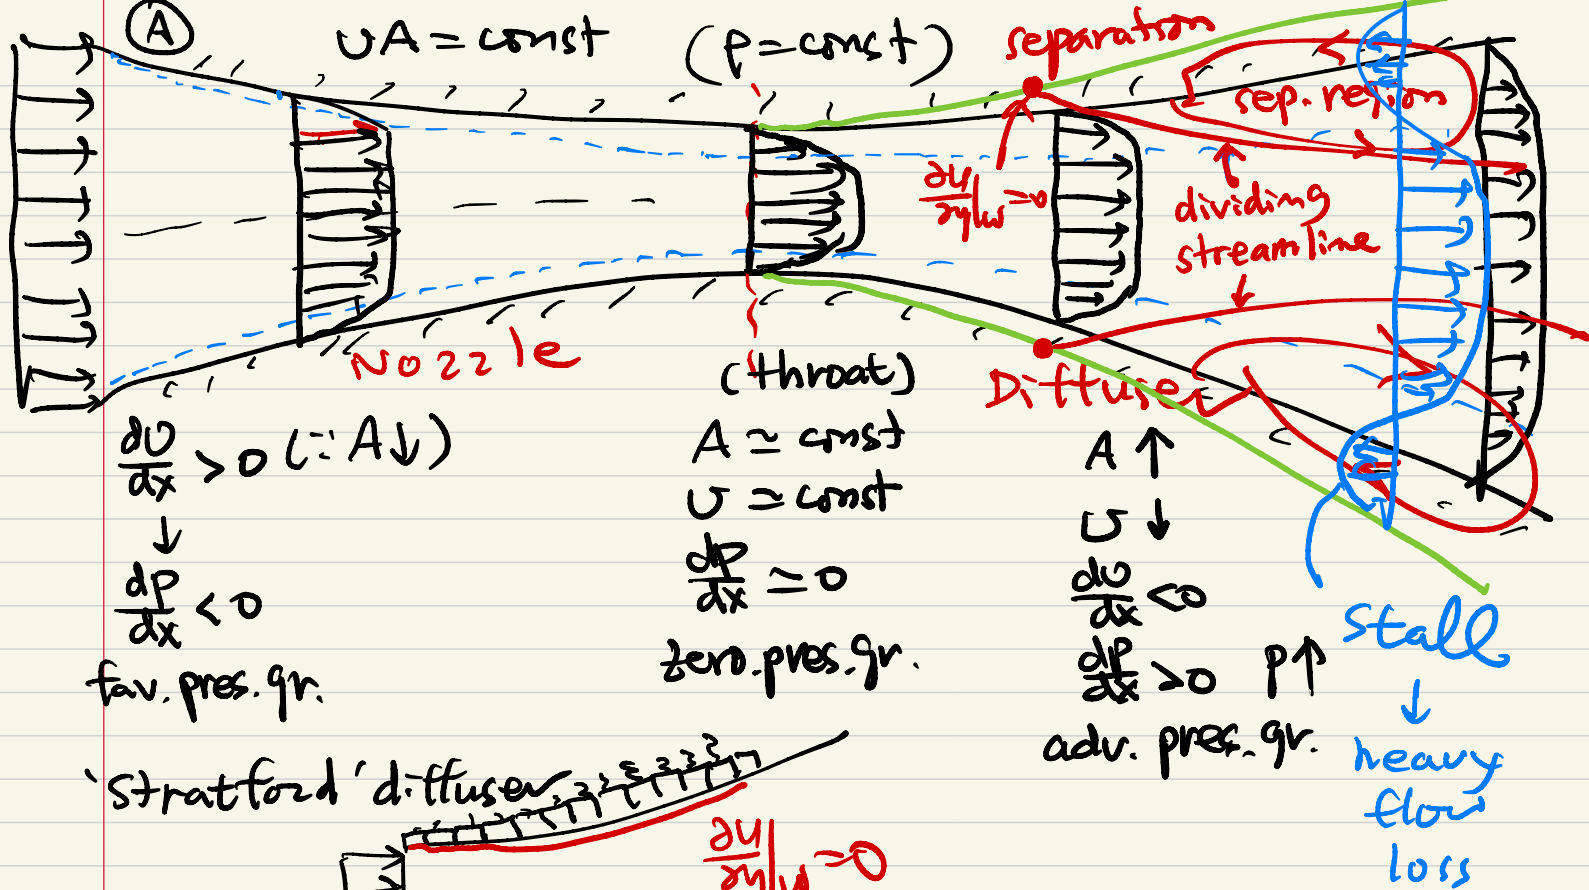 Ⓐ UA = const (ρ = const)
separation
sep. region
∂u/∂y|w = 0
dividing
streamline
Nozzle
(throat)
Diffuser
dU/dx > 0 (∵ A↓)
↓
dp/dx < 0
fav. pres. gr.
A ≃ const
U ≃ const
dp/dx ≃ 0
zero. pres. gr.
A ↑
U ↓
dU/dx < 0
dp/dx > 0 p↑
adv. pres. gr.
Stall
↓
heavy
flow
loss
'Stratford' diffuser
∂u/∂y|w = 0